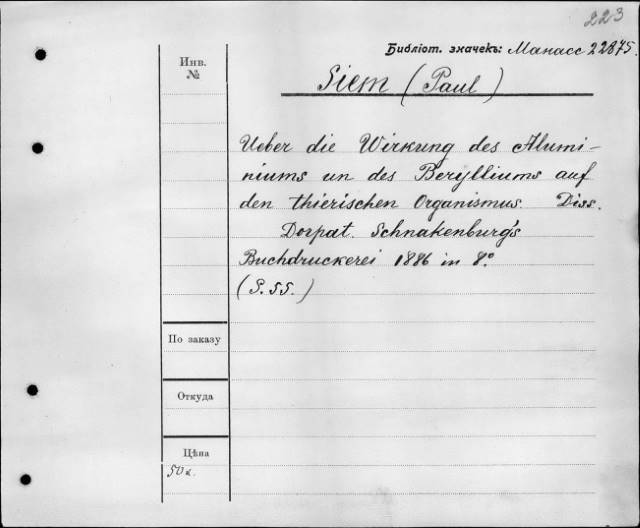 223
Библіот. значекъ: Манасс 22875.
Инв.
№
Siem (Paul)
Ueber die Wirkung des Alumi-
niums un des Berylliums auf
den thierischen Organismus. Diss.
Dorpat. Schnakenburg's
Buchdruckerei 1886 in 8°.
(S. 55.)
По заказу
Откуда
Цѣна
50 к.